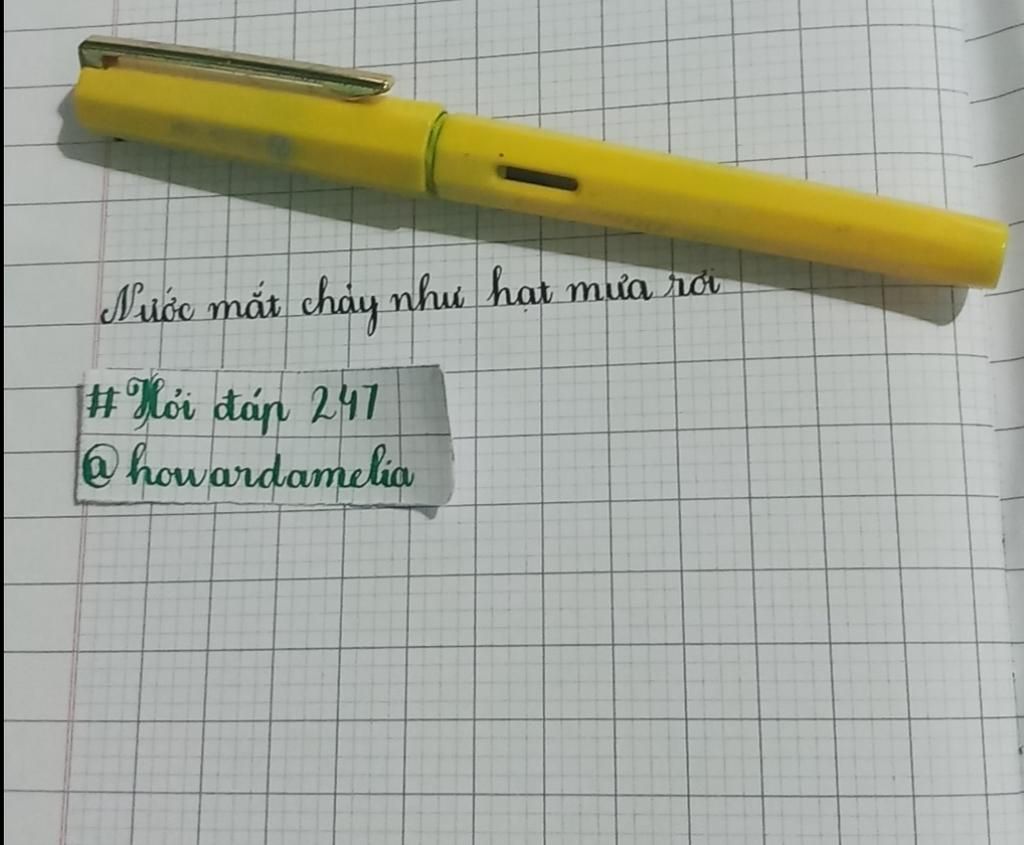 Nước mắt chảy như hạt mưa rơi
# Hỏi đáp 247
@howardamelia